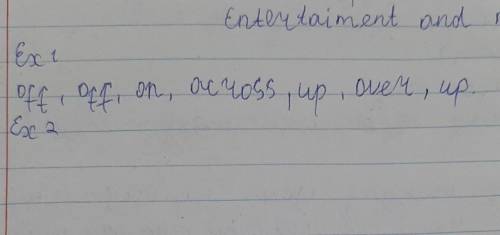 Entertaiment and
Ex 1
off, off, on, across, up, over, up.
Ex 2